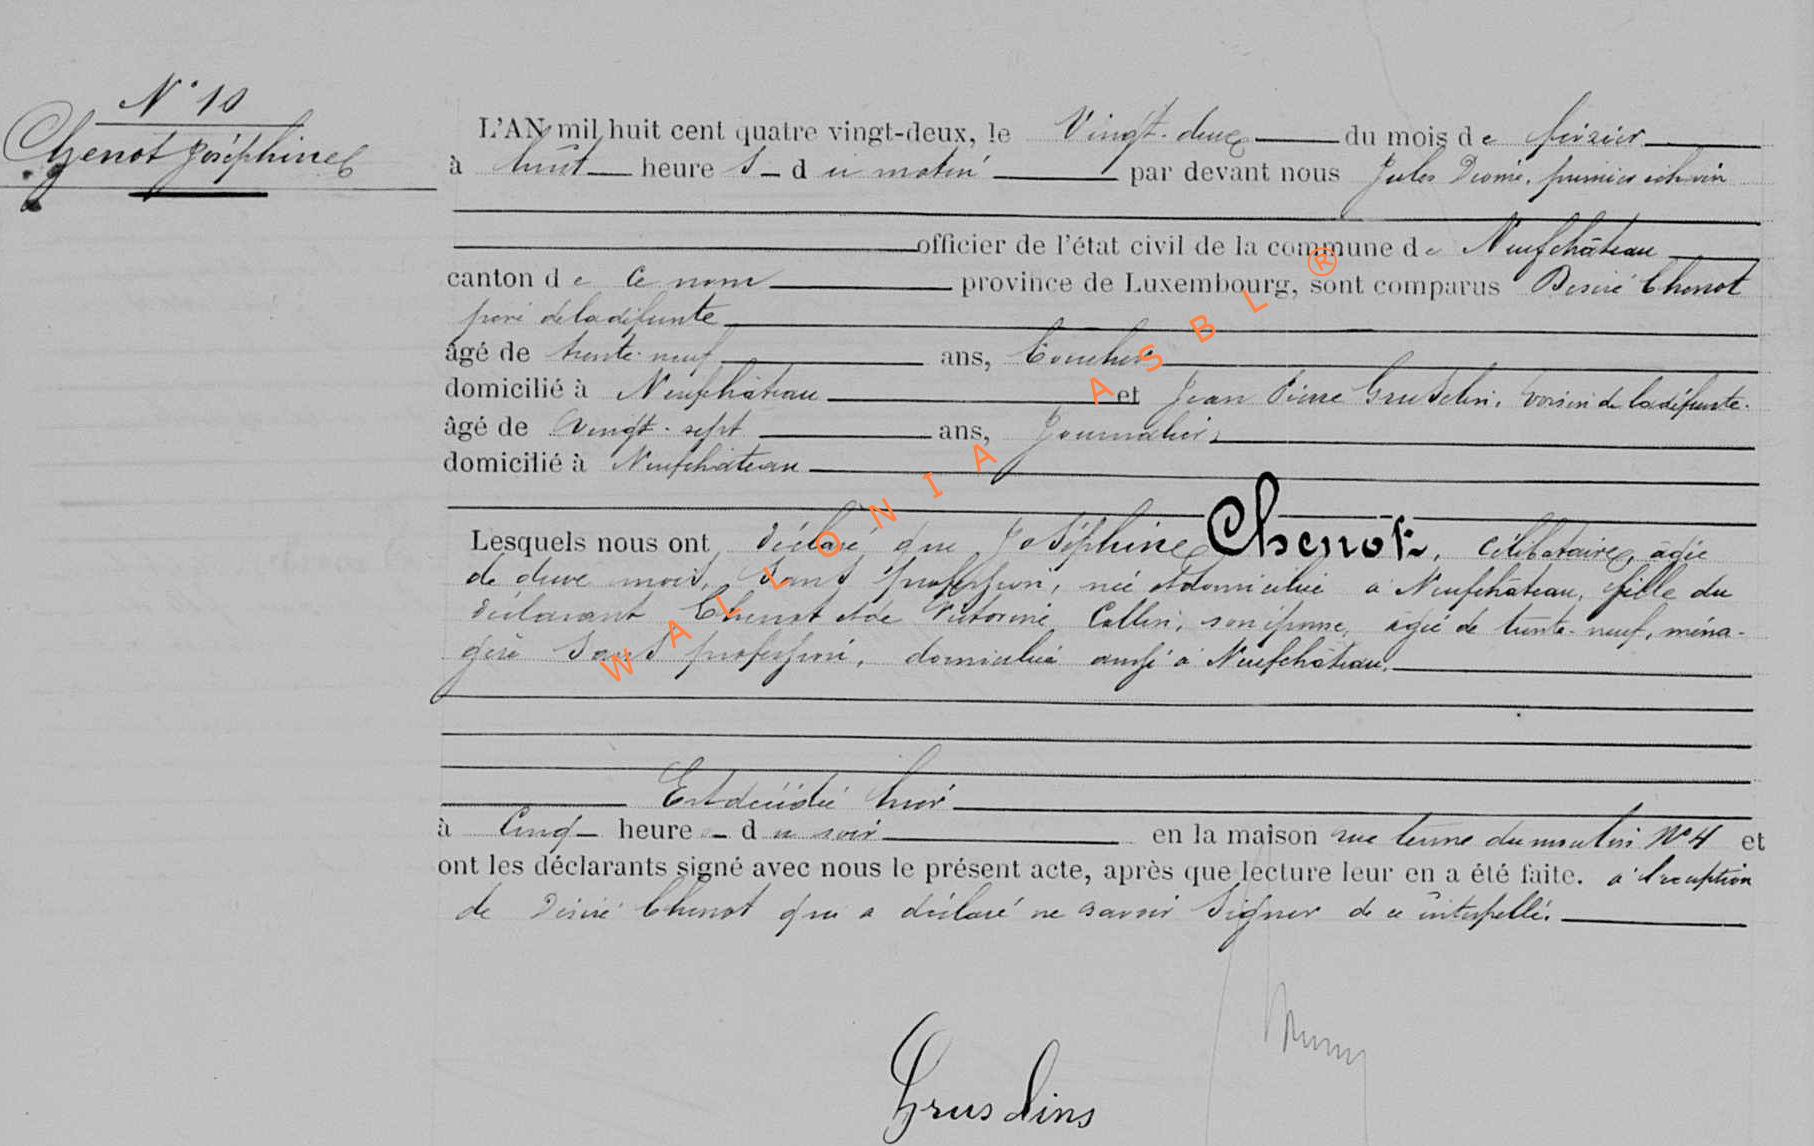 N° 10
Chenot Joséphine
L'AN mil huit cent quatre vingt-deux, le Vingt-deux du mois de février
à huit heures du matin par devant nous Jules premier échevin
officier de l'état civil de la commune de Neufchâteau
canton de ce nom province de Luxembourg, sont comparus Désiré Chenot
père de la défunte
âgé de trente-neuf ans,
domicilié à Neufchâteau et Jean Pierre voisin de la défunte
âgé de vingt-sept ans, Journalier,
domicilié à Neufchâteau
Lesquels nous ont déclaré que Joséphine Chenot, célibataire, âgée
de deux mois, sans profession, née et domiciliée à Neufchâteau, fille du
déclarant Chenot et de Victorine Collin, son épouse, âgée de trente-neuf, ména-
gère sans profession, domiciliée aussi à Neufchâteau.
Est décédée hier
à cinq heures du soir en la maison rue terme du moulin N° 4 et
ont les déclarants signé avec nous le présent acte, après que lecture leur en a été faite. à l'exception
de Désiré Chenot qui a déclaré ne savoir signer de ce interpellé.
WALLONIA ASBL ®